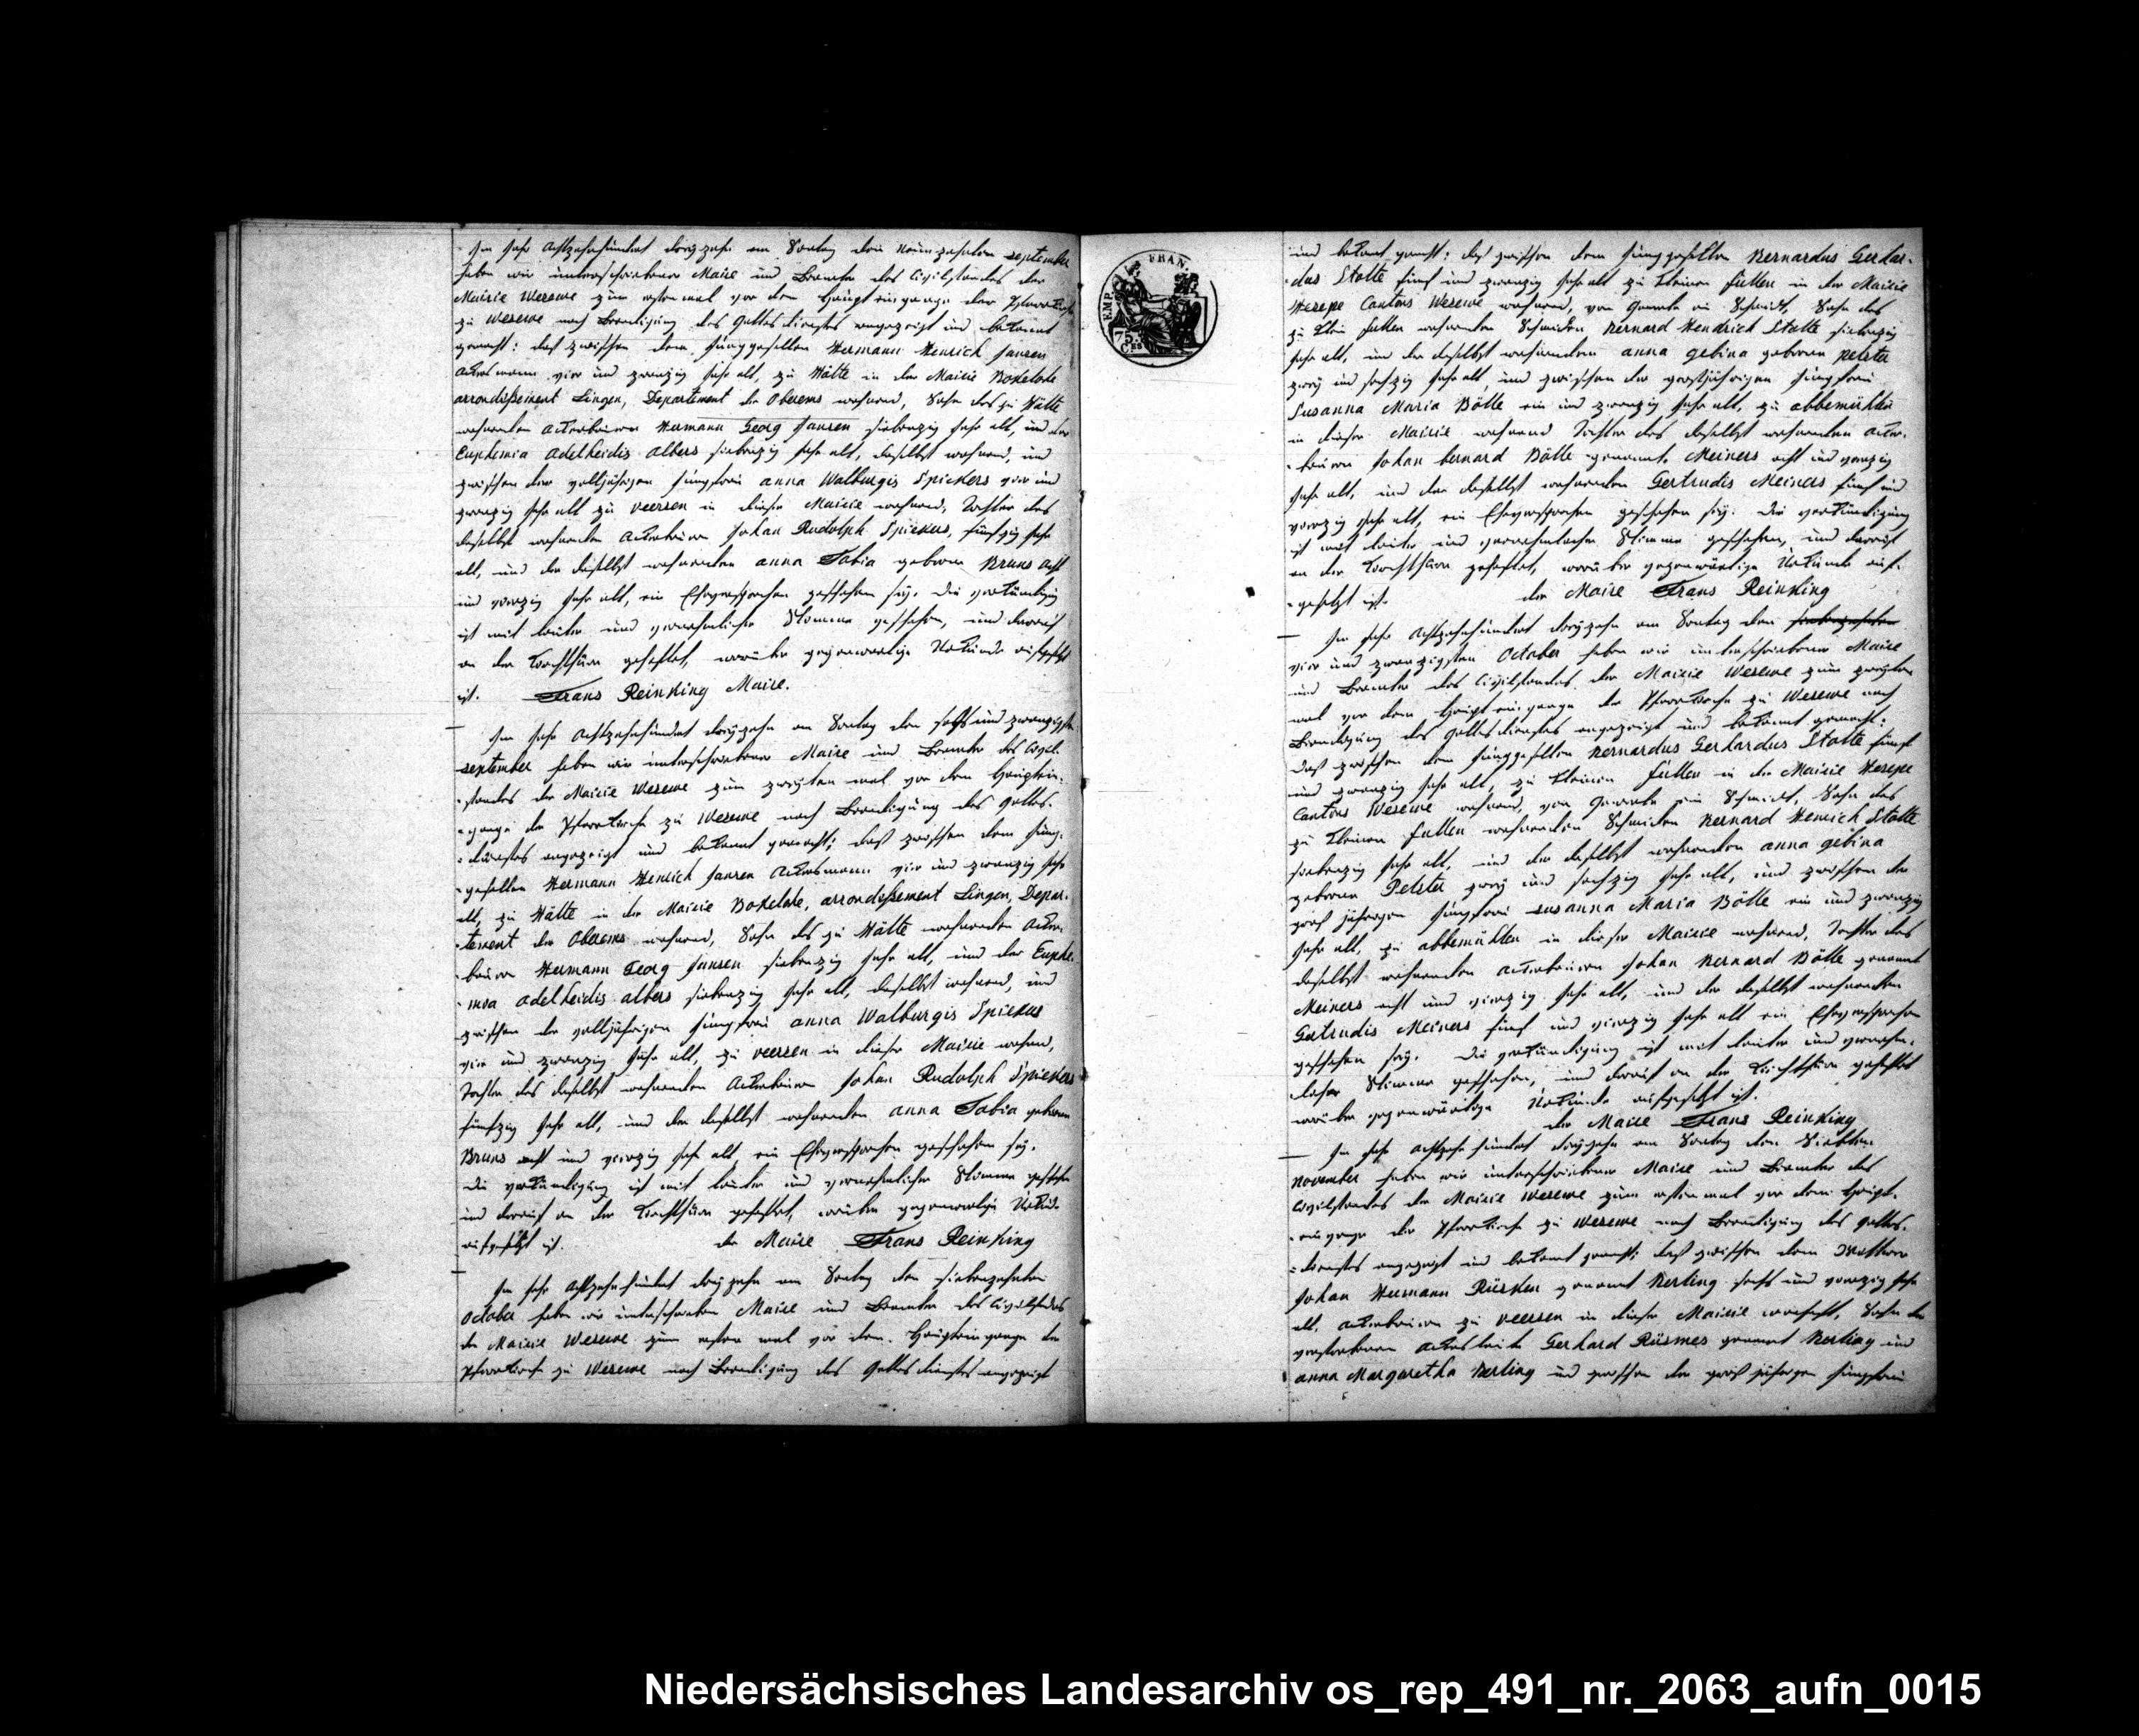 Im Jahr Achtzehnhundert dreyzehn am Sontag den Neunzehnten september
haben wir unterschriebener Maire und Beamter des Civilstandes der
Mairie Wesewe zum ersten mal vor dem Haupteingange der Pfarrkirche
zu Wesewe nach Beendigung des Gottesdienstes angezeigt und bekannt
gemacht: daß zwischen dem Junggesellen Hermann Henrich Jansen
Ackersmann vier und zwanzig Jahr alt, zu Hälte in der Mairie Bokelohe
arrondißement Lingen, Departement der Oberems wohnend, Sohn des zu Hälte
wohnenden Ackerbauern Hermann Georg Jansen siebenzig Jahr alt, und der
Euphemia Adelheidis Albers siebenzig Jahr alt, daselbst wohnend, und
zwischen der volljährigen Jungfrau anna Walburgis Spickers vier und
zwanzig Jahr alt zu veersen in dieser Mairie wohnend, Tochter des
daselbst wohnenden Ackerbauern Johan Rudolph Spickers, fünfzig Jahr
alt, und der daselbst wohnenden anna Tabia geboren Bruns acht
und vierzig Jahr alt, ein Eheversprechen geschehen sey. Die verkündigung
ist mit lauter und vernehmlicher Stimme geschehen, und darauf
an der Kirchthüre geheftet, worüber gegenwärtige Urkunde aufgesetzt
ist. Frans Reinking Maire.
Im Jahr Achtzehnhundert dreyzehn am Sontag den sechs und zwanzigsten
september haben wir unterschriebener Maire und Beamter des Civil-
-standes der Mairie Wesewe zum zweyten mal vor dem Hauptein-
-gange der Pfarrkirche zu Wesewe nach Beendigung des Gottes-
-dienstes angezeigt und bekannt gemacht; daß zwischen dem Jung-
-gesellen Hermann Henrich Jansen Ackersmann vier und zwanzig Jahr
alt, zu Hälte in der Mairie Bokelohe, arrondißement Lingen, Depar-
-tement der Oberems wohnend, Sohn des zu Hälte wohnenden Acker-
-bauern Hermann Georg Jansen siebenzig Jahr alt, und der Euphe-
-mia adelheidis albers siebenzig Jahr alt, daselbst wohnend, und
zwischen der volljährigen Jungfrau anna Walburgis Spickers
vier und zwanzig Jahr alt, zu veersen in dieser Mairie wohnend,
Tochter des daselbst wohnenden Ackerbauern Johan Rudolph Spickers
fünfzig Jahr alt, und der daselbst wohnenden anna Tabia geboren
Bruns acht und vierzig Jahr alt, ein Eheversprechen geschehen sey.
Die verkündigung ist mit lauter und vernehmlicher Stimme geschehen
und darauf an der Kirchthüre geheftet, worüber gegenwärtige Urkunde
aufgesetzt ist. der Maire Frans Reinking
Im Jahr Achtzehnhundert dreyzehn am Sontag den siebenzehnten
october haben wir unterschriebener Maire und Beamter des Civilstandes
der Mairie Wesewe zum ersten mal vor dem Haupteingange der
Pfarrkirche zu Wesewe nach Beendigung des Gottesdienstes angezeigt
EMP. FRAN.
75.
C.ES
und bekannt gemacht: daß zwischen dem Junggesellen Bernardus Gerhar-
-dus Stolte fünf und zwanzig Jahr alt zu kleinen füllen in der Mairie
Hesepe Cantons Wesewe wohnend, von Gewerbe ein Schmidt, Sohn des
zu klein füllen wohnenden Schmieden Bernard Hendrich Stolte siebenzig
Jahr alt, und der daselbst wohnenden anna gebina geboren Pelster
zwey und sechzig Jahr alt, und zwischen der großjährigen Jungfrau
Susanna Maria Bölle ein und zwanzig Jahr alt, zu abbemühlen
in dieser Mairie wohnend Tochter des daselbst wohnenden Acker-
-bauern Johan bernard Bölle genannt Meiners acht und vierzig
Jahr alt, und der daselbst wohnenden Gertrudis Meiners fünf und
vierzig Jahr alt, ein Eheversprechen geschehen sey. Die verkündigung
ist mit lauter und vernehmlicher Stimme geschehen, und darauf
an der Kirchthüre geheftet, worüber gegenwärtige Urkunde auf-
-gesetzt ist. der Maire Frans Reinking
Im Jahr Achtzehnhundert dreyzehn am Sontag den siebenzehnten
vier und zwanzigsten October haben wir unterschriebener Maire
und Beamter des Civilstandes der Mairie Wesewe zum zweyten
mal vor dem Haupteingange der Pfarrkirche zu Wesewe nach
Beendigung des Gottesdienstes angezeigt und bekannt gemacht:
daß zwischen dem Junggesellen Bernardus Gerhardus Stolte fünf
und zwanzig Jahr alt, zu kleinen füllen in der Mairie Hesepe
Cantons Wesewe wohnend, von Gewerbe ein Schmidt, Sohn des
zu kleinen füllen wohnenden Schmieden Bernard Henrich Stolte
siebenzig Jahr alt, und der daselbst wohnenden anna gebina
geboren Pelster zwey und sechzig Jahr alt, und zwischen der
großjährigen Jungfrau susanna Maria Bölle ein und zwanzig
Jahr alt, zu abbemühlen in dieser Mairie wohnend, Tochter des
daselbst wohnenden Ackerbauern Johan Bernard Bölle genannt
Meiners acht und vierzig Jahr alt, und der daselbst wohnenden
Gertrudis Meiners fünf und vierzig Jahr alt ein Eheversprechen
geschehen sey. Die verkündigung ist mit lauter und vernehm-
-licher Stimme geschehen, und darauf an der Kirchthüre geheftet
worüber gegenwärtige Urkunde aufgesetzt ist.
der Maire Frans Reinking
Im Jahr Achtzehnhundert dreyzehn am Sontag den Siebten
november haben wir unterschriebener Maire und Beamter des
Civilstandes der Mairie Wesewe zum ersten mal vor dem Haupt-
-eingange der Pfarrkirche zu Wesewe nach Beendigung des Gottes-
-dienstes angezeigt und bekannt gemacht; daß zwischen dem Wittwer
Johan Hermann Rüsken genannt Kerling sechs und vierzig Jahr
alt, Ackerbauer zu veersen in dieser Mairie wohnhaft, Sohn der
verstorbenen Ackersleute Gerhard Rüsmes genannt Kerling und
anna Margaretha Kerling und zwischen der großjährigen Jungfrau
Niedersächsisches Landesarchiv os_rep_491_nr._2063_aufn_0015